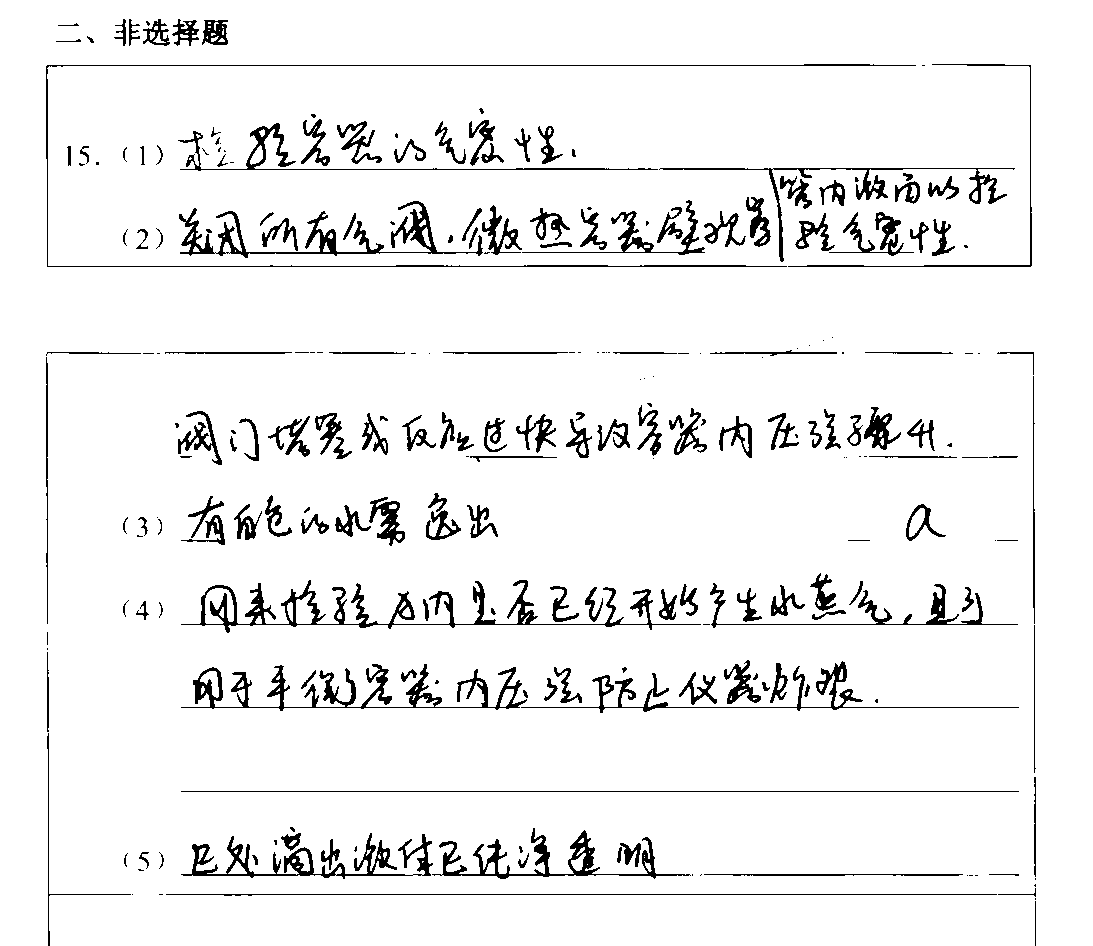 二、非选择题
15.（1）检验容器的气密性.
（2）关闭所有气阀.微热容器壁观察管内液面以检验气密性.
阀门堵塞或反应过快导致容器内压强骤升.
（3）有白色的水雾逸出 a
（4）用来检验 内是否已经开始产生水蒸气，且可
用于平衡容器内压强防止仪器炸裂.
（5） 处滴出液体已纯净透明